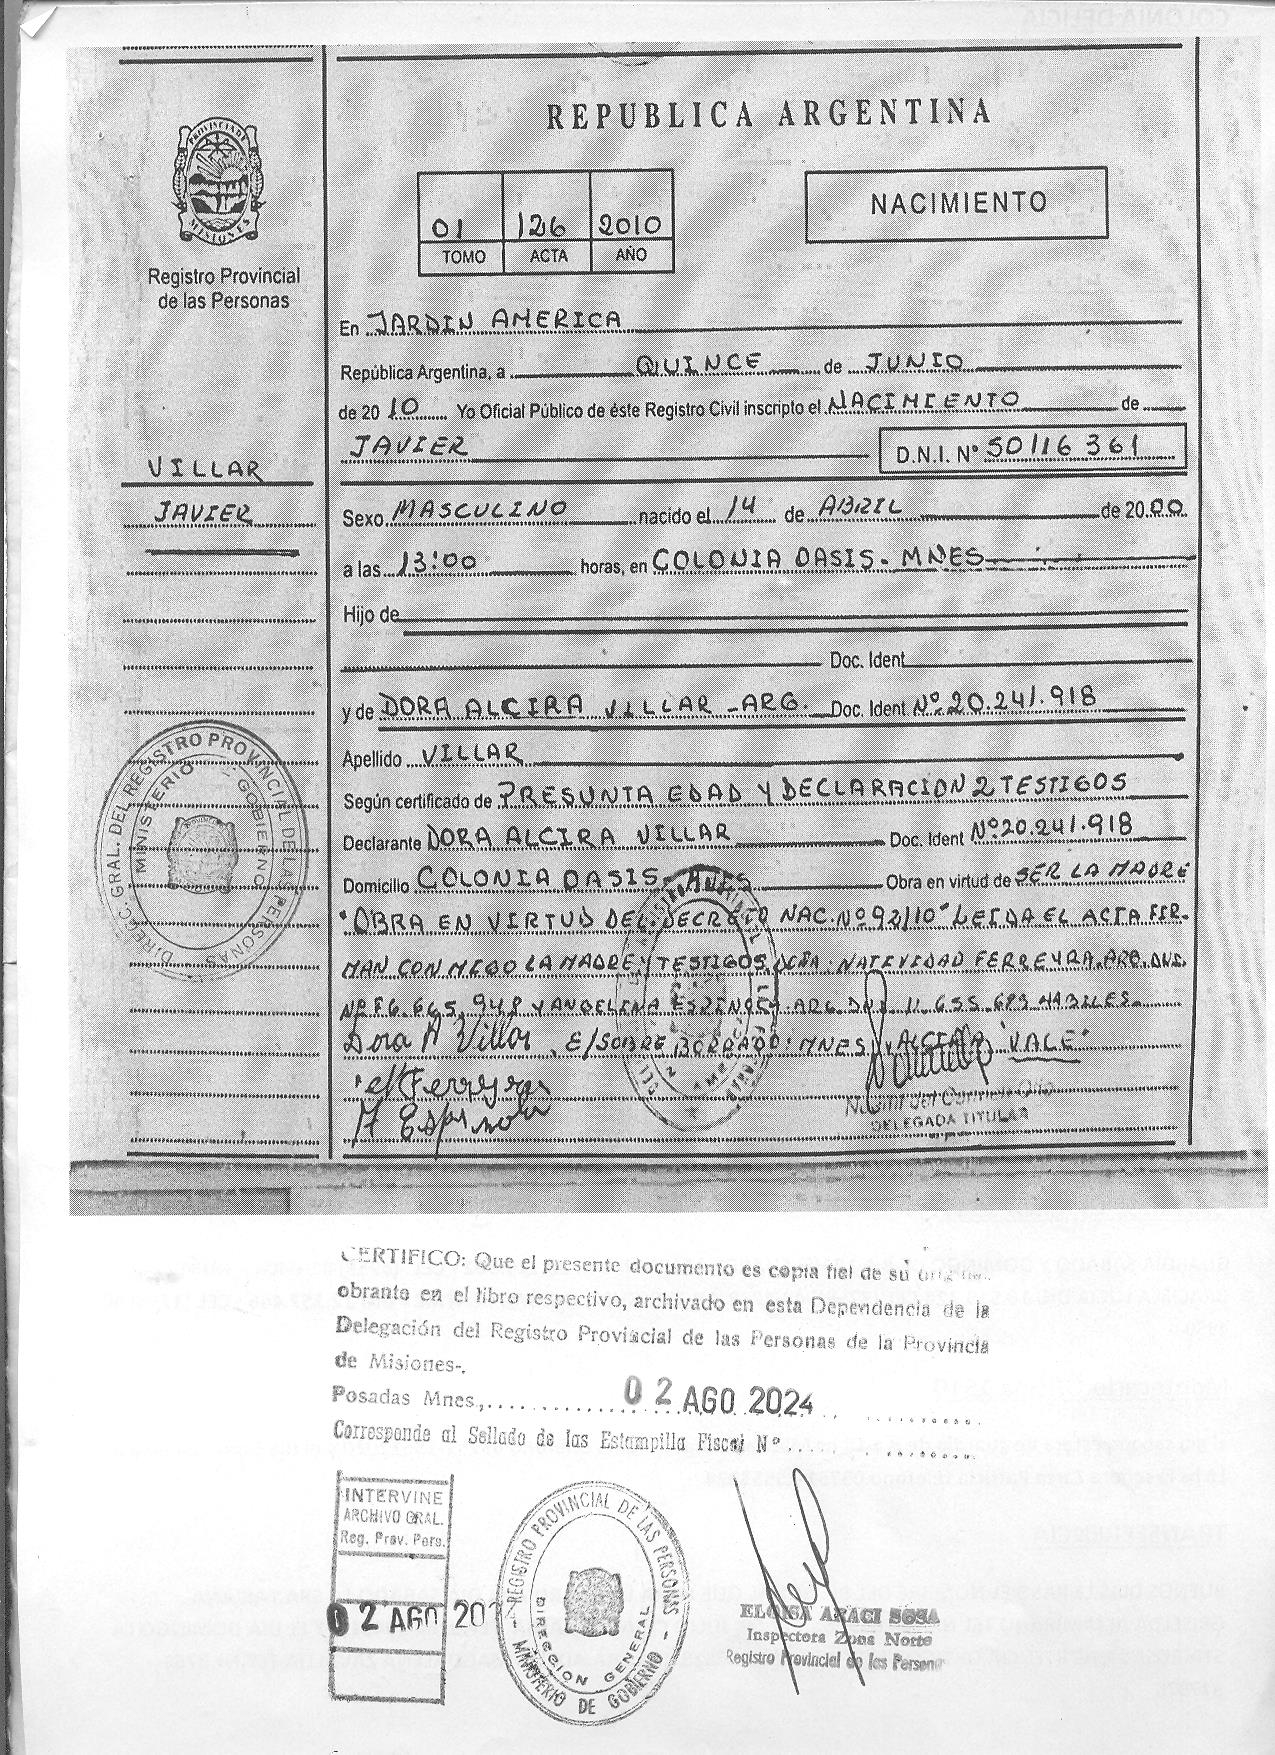 REPUBLICA ARGENTINA
PROVINCIA DE MISIONES
Registro Provincial
de las Personas
01 126 2010
TOMO ACTA AÑO
NACIMIENTO
VILLAR
JAVIER
En JARDIN AMERICA
República Argentina, a QUINCE de JUNIO
de 2010 Yo Oficial Público de éste Registro Civil inscripto el NACIMIENTO de
JAVIER D.N.I. Nº 50116361
Sexo MASCULINO nacido el 14 de ABRIL de 2000
a las 13:00 horas, en COLONIA OASIS. MNES
Hijo de
Doc. Ident
y de DORA ALCIRA VILLAR -ARG. Doc. Ident Nº.20.241.918
Apellido VILLAR
Según certificado de PRESUNTA EDAD Y DECLARACION 2 TESTIGOS
Declarante DORA ALCIRA VILLAR Doc. Ident Nº20.241.918
Domicilio COLONIA OASIS - MNES Obra en virtud de SER LA MADRE
"OBRA EN VIRTUD DEL DECRETO NAC. Nº92/10" LEIDA EL ACTA FIR-
MAN CONMIGO LA MADRE Y TESTIGOS NATIVIDAD FERREYRA. ARG. DNI.
Y ANGELINA ESPINOLA. ARG. DNI 11.655.683 HABILES
Dora A Villar E/SOBRE BORRADO: MNES y ALCIRA "VALE"
Ferreyra
A Espinola
DELEGADA TITULAR
DIRECC. GRAL. DEL REGISTRO PROVINCIAL DE LAS PERSONAS
MINISTERIO GOBIERNO
CERTIFICO: Que el presente documento es copia fiel de su
obrante en el libro respectivo, archivado en esta Dependencia de la
Delegación del Registro Provincial de las Personas de la Provincia
de Misiones-.
Posadas Mnes., 02 AGO 2024
Corresponde al Sellado de las Estampilla Fiscal Nº
INTERVINE
ARCHIVO GRAL.
Reg. Prov. Pers.
02 AGO 202
REGISTRO PROVINCIAL DE LAS PERSONAS
DIRECCION GENERAL
MINISTERIO DE GOBIERNO
ELOISA ARACI SOSA
Inspectora Zona Norte
Registro Provincial de las Personas